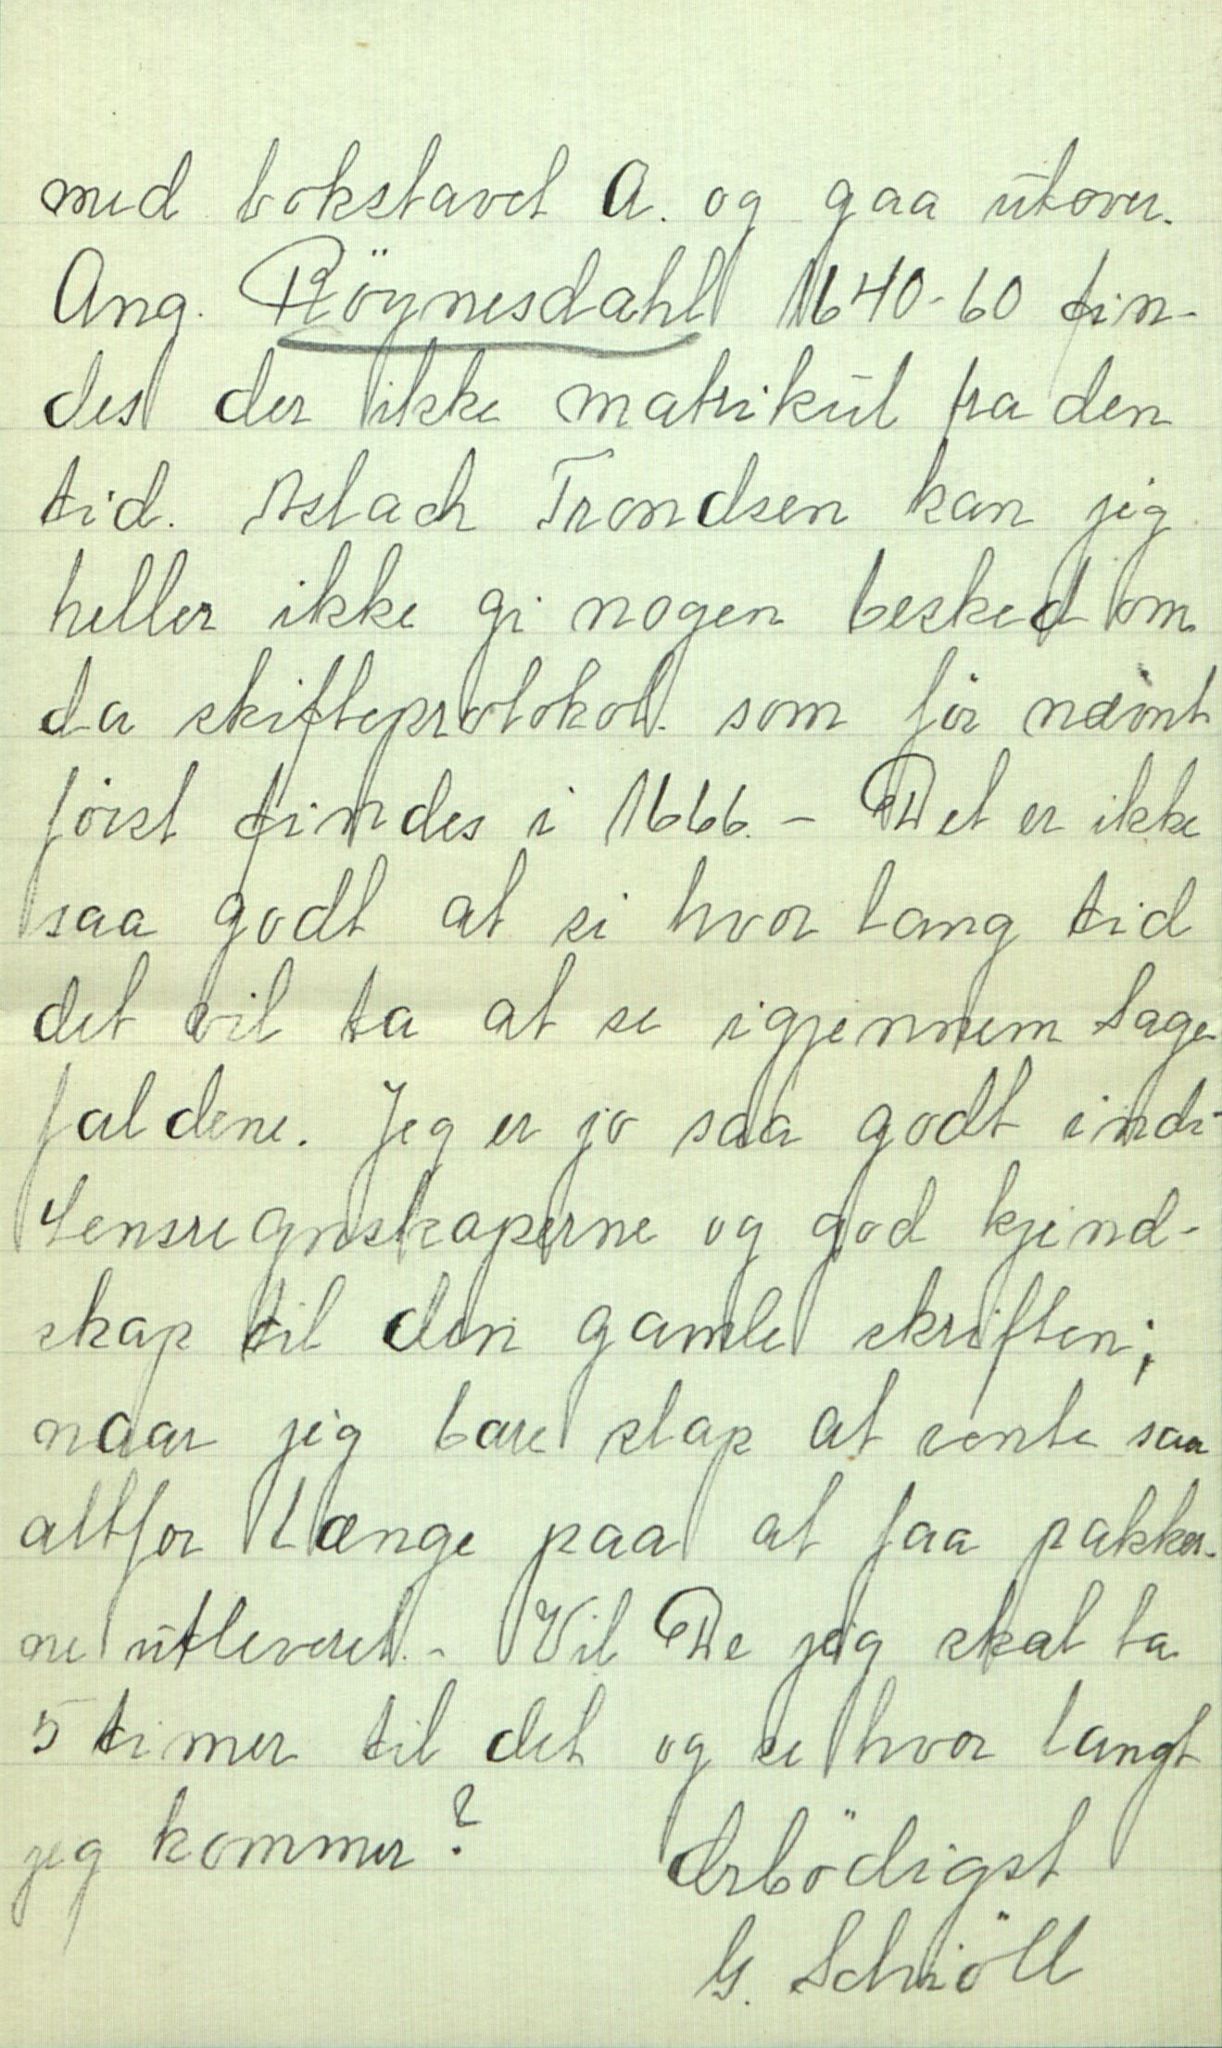 med bokstavet A. og gaa utover.
Ang. Röynesdahl 1640-60 fin-
des der ikke matrikül fra den
tid. Aslach Trondsen kan jeg
heller ikke gi nogen besked om
da skifteprotokol. som för nævnt
först findes i 1666. - Det er ikke
saa godt at si hvor lang tid
det vil ta at se igjennem Sage-
faldene. Jeg er jo saa godt ind i
Lensregnskaperne og god kjend-
skap til den gamle skriften;
naar jeg bare slap at vente saa
altfor længe paa at faa pakker-
ne ütleveret. - Vil De jeg skal ta
5 timer til det og se hvor langt
jeg kommer?
Ærbödigst
G. Schiöll